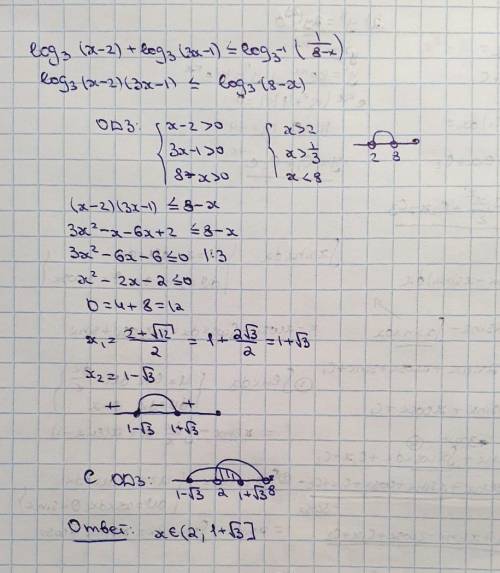 log₃ (x-2) + log₃ (3x-1) ≤ log₃⁻¹ (1/(8-x))
log₃ (x-2)(3x-1) ≤ log₃ (8-x)
ОДЗ: { x-2>0 { x>2
3x-1>0 x>1/3
8-x>0 x<8
2 8
(x-2)(3x-1) ≤ 8-x
3x²-x-6x+2 ≤ 8-x
3x²-6x-6 ≤ 0 |:3
x²-2x-2 ≤ 0
D = 4+8 = 12
x₁ = (2+√12)/2 = 1 + 2√3/2 = 1+√3
x₂ = 1-√3
+ - +
1-√3 1+√3
С ОДЗ:
1-√3 2 1+√3 8
Ответ: x∈(2; 1+√3]